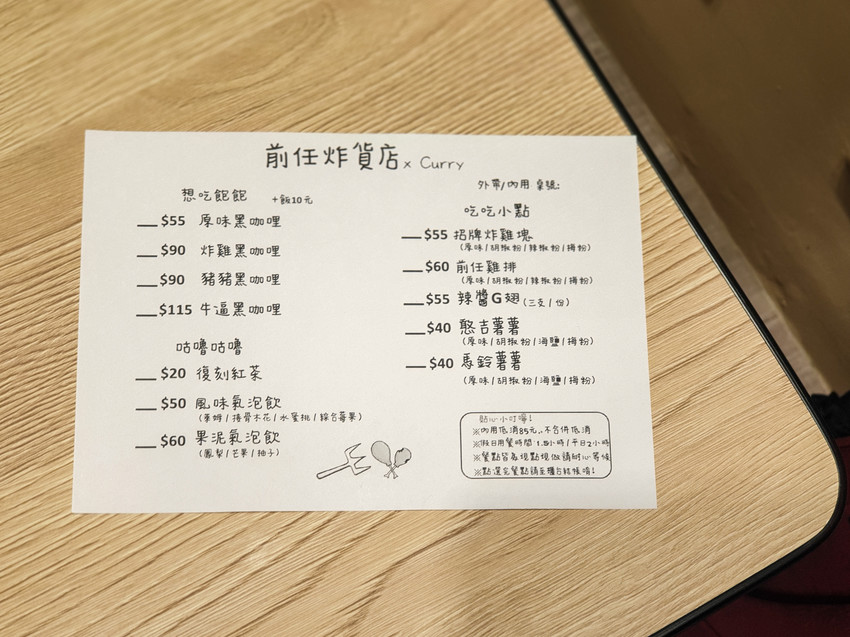 前任炸貨店 x Curry
外帶/內用 桌號:
想吃飽飽 +飯10元
__$55 原味黑咖哩
__$90 炸雞黑咖哩
__$90 豬豬黑咖哩
__$115 牛逼黑咖哩
咕嚕咕嚕
__$20 復刻紅茶
__$50 風味氣泡飲
(萊姆/接骨木花/水蜜桃/綜合莓果)
__$60 果泥氣泡飲
(鳳梨/芒果/柚子)
吃吃小點
__$55 招牌炸雞塊
(原味/胡椒粉/辣椒粉/梅粉)
__$60 前任雞排
(原味/胡椒粉/辣椒粉/梅粉)
__$55 辣醬G翅(三支/份)
__$40 憨吉薯薯
(原味/胡椒粉/海鹽/梅粉)
__$40 馬鈴薯薯
(原味/胡椒粉/海鹽/梅粉)
貼心小叮嚀!
※內用低消85元,不合併低消
※假日用餐時間1.5小時/平日2小時
※餐點皆為現點現做請耐心等候
※點選完餐點請至櫃台結帳唷!